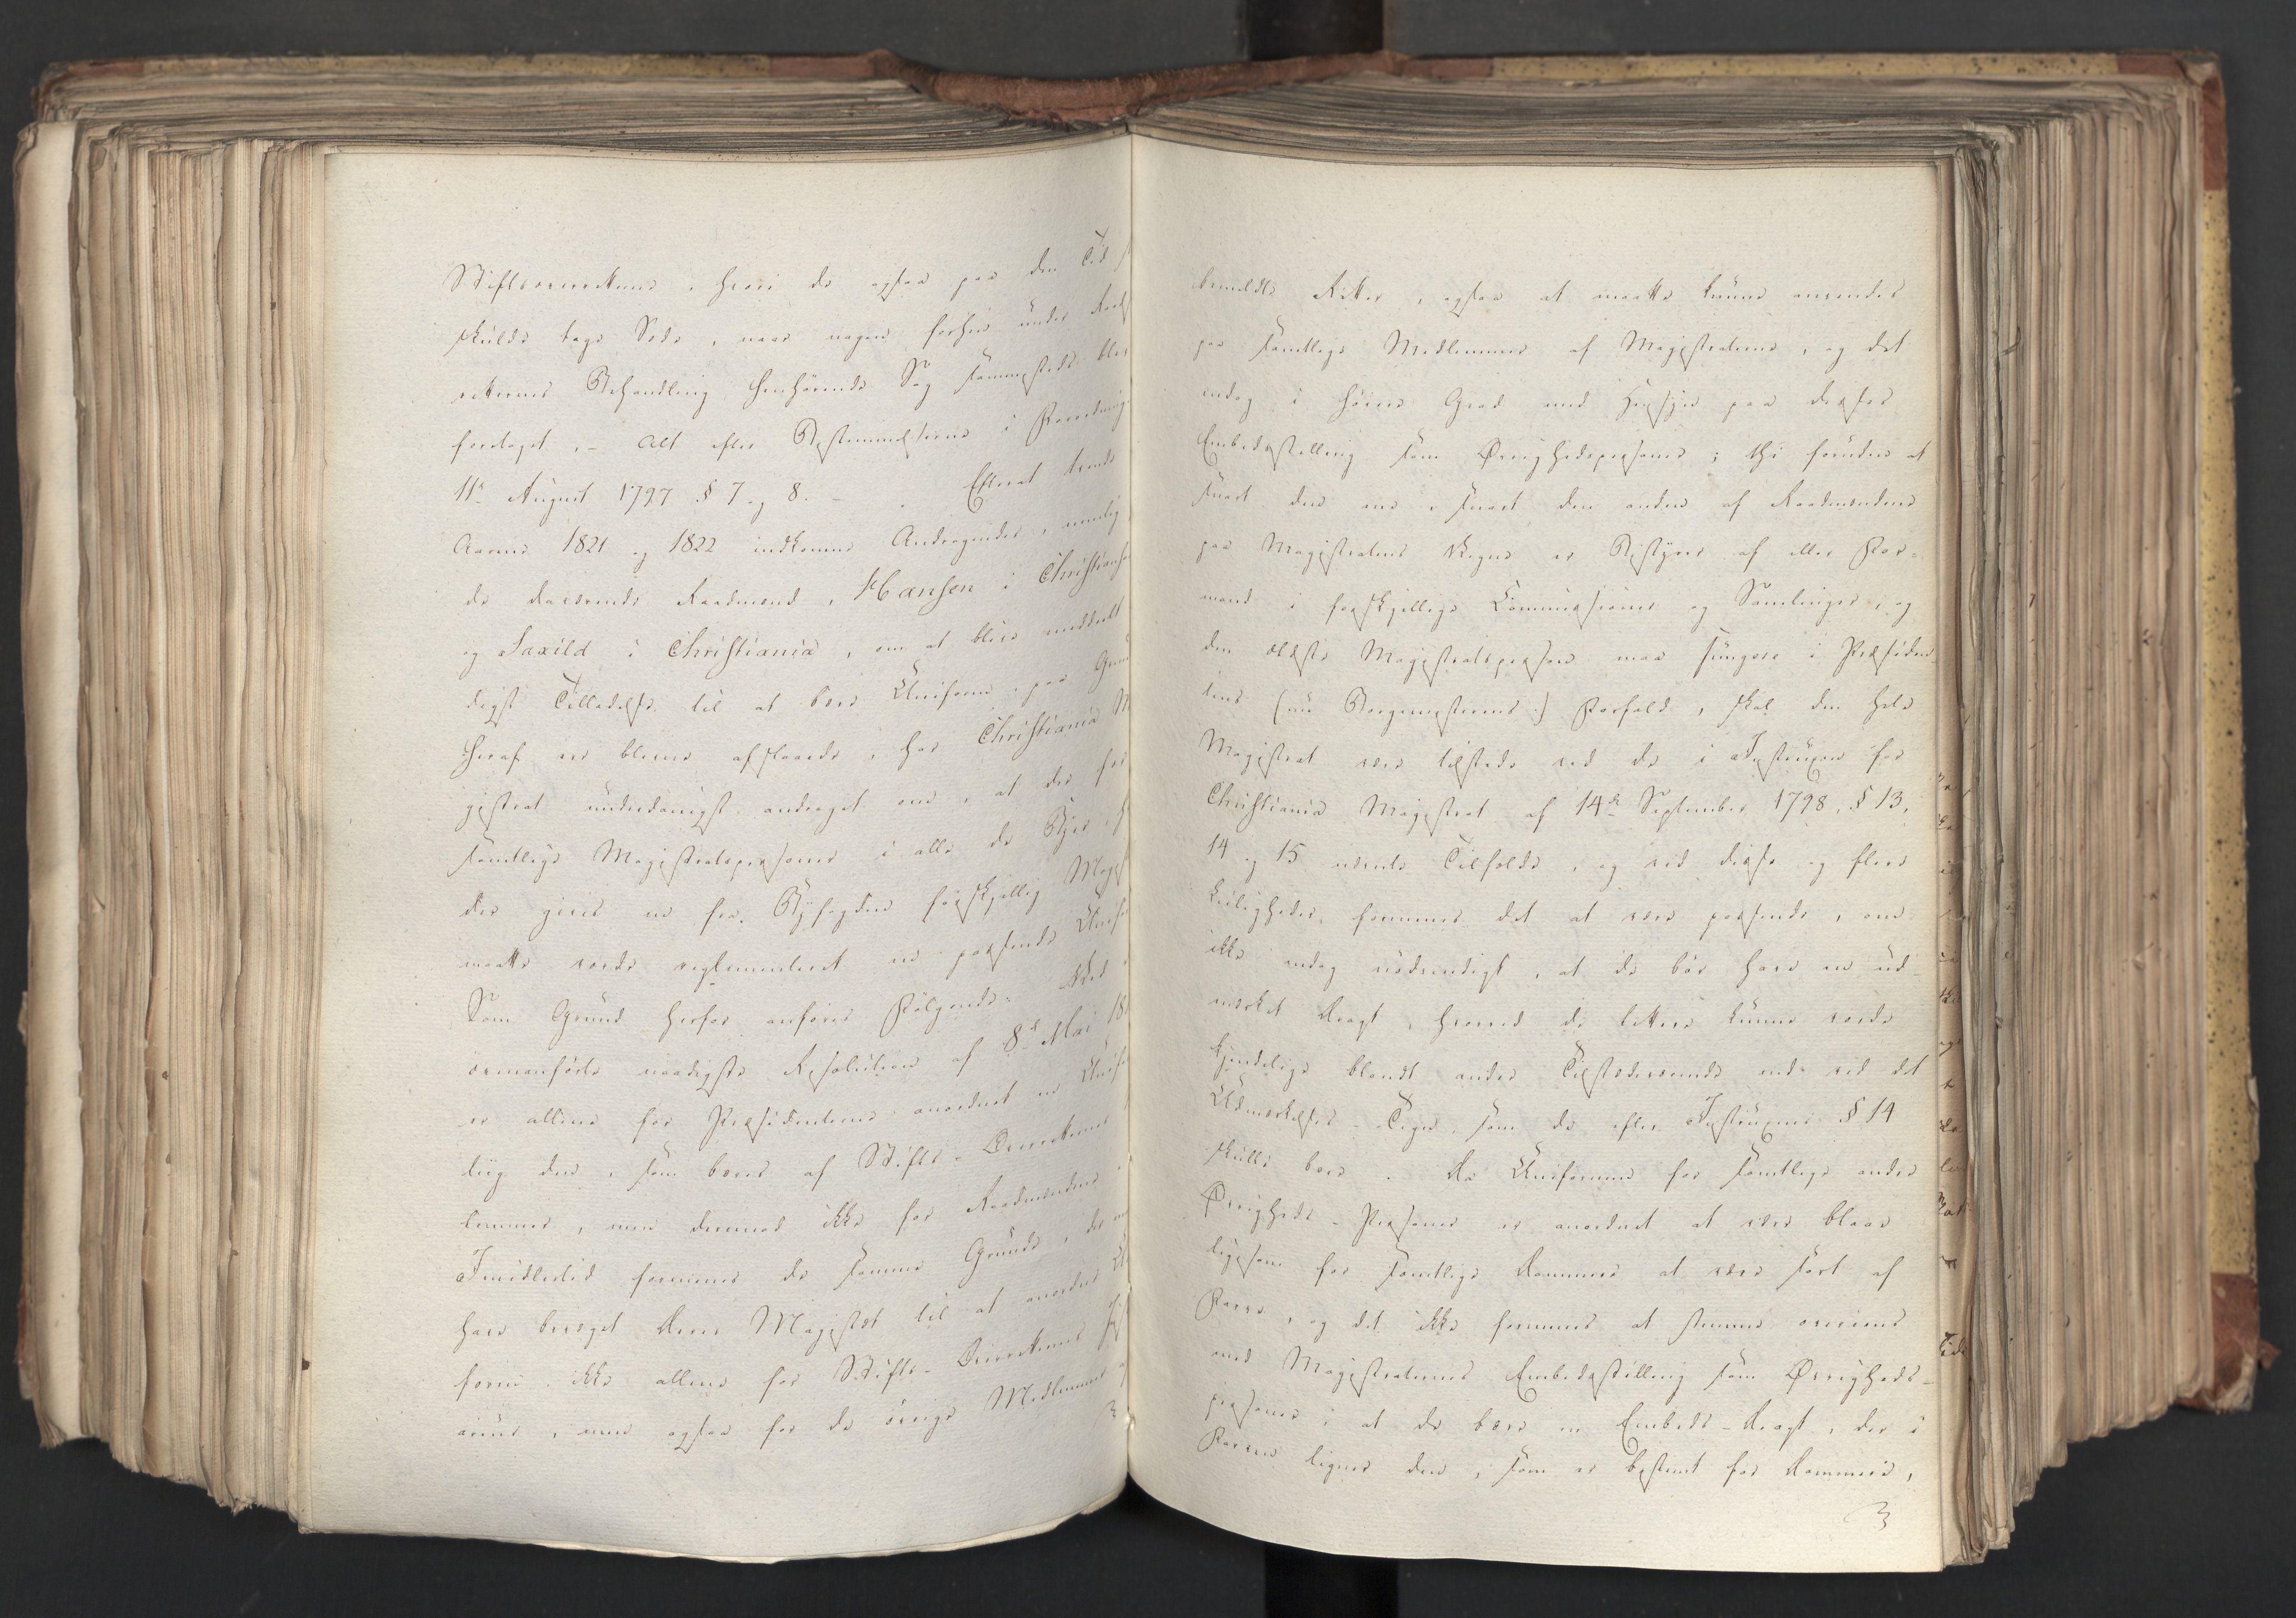 Stiftsoverretterne, hvori de ogsaa paa den Tid
skulde tage Sæde, naar nogen forhen under Raadstue-
retternes Behandling henhørende Sag sammesteds blev
foretaget, - Alt efter Bestemmelserne i Forordning
11te August 1797 § 7 og 8. - Efterat tvende
Aarene 1821 og 1822 indkomne Andragender, nemlig
de daværende Raadmænd, Hansen i Christians
og Saxild i Christiania, om at blive meddeelt
digst Tilladelse til at bære Uniform, paa Grund
heraf ere blevne afslaaede, har Christiania Ma
gistrat underdanigst andraget om, at der for
samtlige Magistratspersoner i alle de Byer, h
der gives en fra Byfogden forskjellig Magist
maatte vorde reglementeret en passende Unifor
Som Grund herfor anføres Følgende: Ved
ovenanførte naadigste Resolution af 8de Mai 18
er allene for Præsidenterne anordnet en Unifo
liig den, som bæres af Stifts-Overretternes
lemmer, men derimod ikke for Raadmændene
Imidlertid formenes de samme Grunde, der
have bevæget Deres Majestæt til at anordne U
form ikke allene for Stifts-Overretternes
arius, men ogsaa for de øvrige Medlemmer
3
bemeldte Retter, ogsaa at maatte kunne anvendes
paa samtlige Medlemmer af Magistraterne, og det
endog i høiere Grad med Hensyn paa disses
Embedsstilling som Øvrighedspersoner; thi foruden at
snart den ene, snart den anden af Raadmændene
paa Magistratens Vegne er Bestyrer af eller For-
mand i forskjellige Commissioner og Samlinger, og
den ældste Magistratsperson maa fungere i Præsiden-
tens (nu Borgermesterens) Forfald, skal den hele
Magistrat være tilstede ved de i Instruxen for
Christiania Magistrat af 14de September 1798, § 13,
14 og 15 nævnte Tilfælde, og ved disse og flere
Leiligheder formenes det at være passende, om
ikke endog nødvendigt, at de bør have en ud-
mærket Dragt, hvorved de lettere kunne vorde
kjendelige blandt andre Tilstedeværende end ved det
Udmærkelses-Tegn, som de efter Instruxens § 14
skulle bære. Da Uniformen for samtlige andre
Øvrigheds-Personer er anordnet at være blaae
ligesom for samtlige Dommere at være sort af
Farve, og det ikke formenes at stemme overeens
med Magistraternes Embedsstilling som Øvrigheds-
personer, at de bære en Embeds-Dragt, der i
Farven ligner den, som er bestemt for Dommere,
3